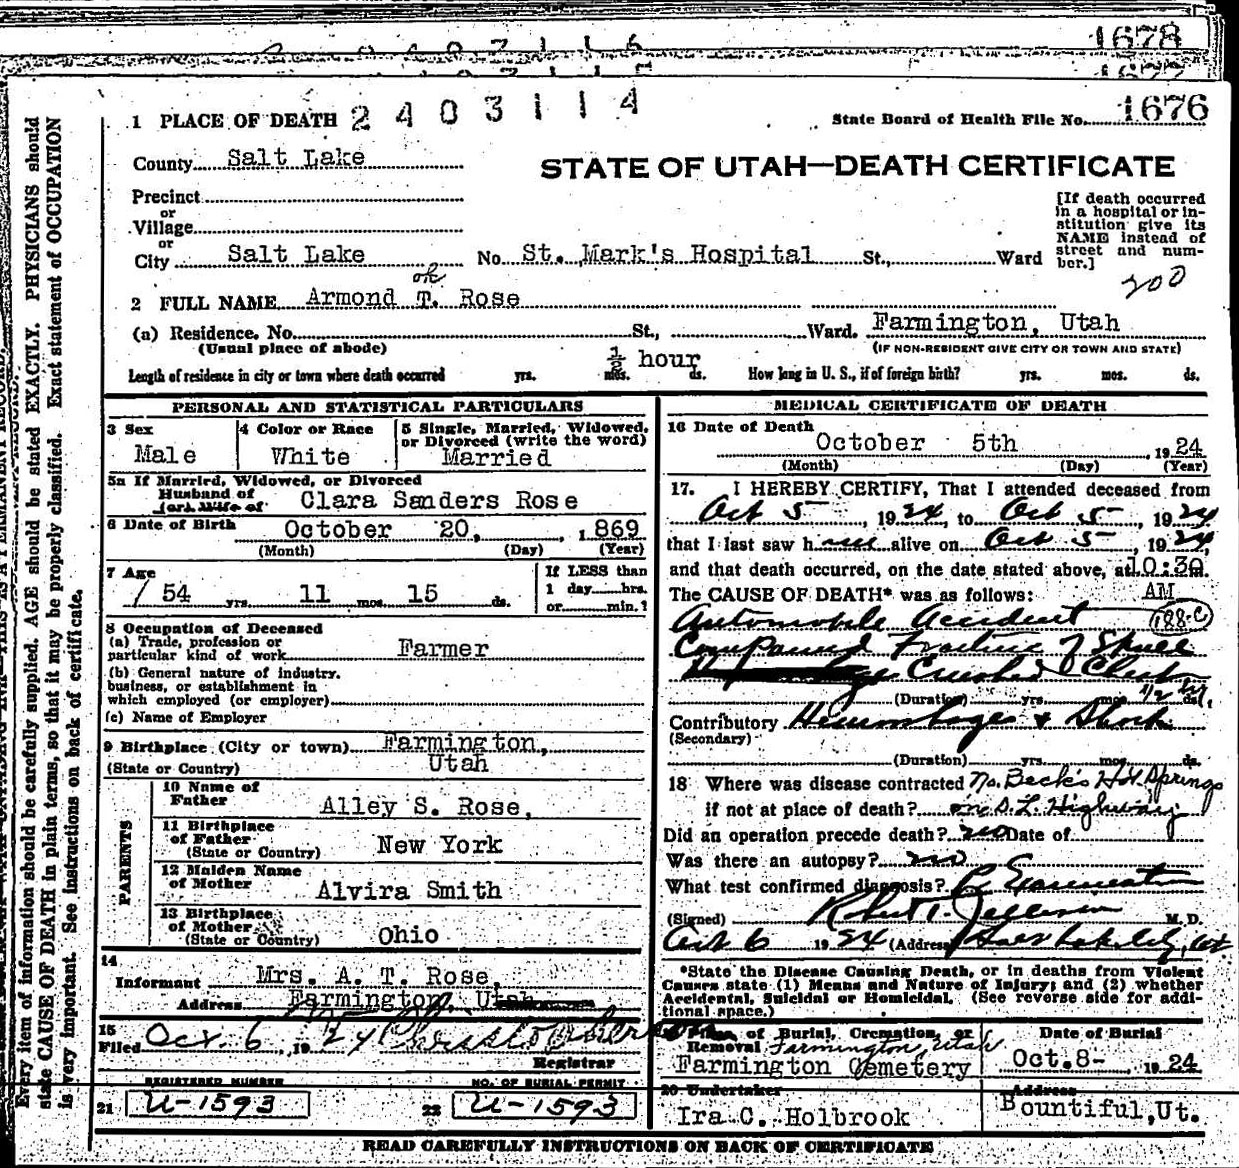 1678
1677
2403114
State Board of Health File No. 1676
1 PLACE OF DEATH
County Salt Lake
STATE OF UTAH—DEATH CERTIFICATE
Precinct
or
Village
or
City Salt Lake No. St. Mark's Hospital St., Ward
[If death occurred
in a hospital or in-
stitution give its
NAME instead of
street and num-
ber.]
200
ok
2 FULL NAME Armond T. Rose
(a) Residence. No. St., Ward. Farmington, Utah
(Usual place of abode) (IF NON-RESIDENT GIVE CITY OR TOWN AND STATE)
½ hour
Length of residence in city or town where death occurred yrs. mos. ds. How long in U. S., if of foreign birth? yrs. mos. ds.
PERSONAL AND STATISTICAL PARTICULARS
3 Sex
Male
4 Color or Race
White
5 Single, Married, Widowed,
or Divorced (write the word)
Married
5a If Married, Widowed, or Divorced
Husband of
(or) Wife of Clara Sanders Rose
6 Date of Birth October 20, 1869
(Month) (Day) (Year)
7 Age
54 yrs. 11 mos. 15 ds.
If LESS than
1 day hrs.
or min.?
8 Occupation of Deceased
(a) Trade, profession or
particular kind of work Farmer
(b) General nature of industry.
business, or establishment in
which employed (or employer)
(c) Name of Employer
9 Birthplace (City or town) Farmington,
(State or Country) Utah
PARENTS
10 Name of
Father Alley S. Rose,
11 Birthplace
of Father
(State or Country) New York
12 Maiden Name
of Mother Alvira Smith
13 Birthplace
of Mother
(State or Country) Ohio
14
Informant Mrs. A. T. Rose,
Address Farmington, Utah
15
Filed Oct. 6, 1924
Registrar
REGISTERED NUMBER
21 U-1593
NO. OF BURIAL PERMIT
22 U-1593
MEDICAL CERTIFICATE OF DEATH
16 Date of Death
October 5th, 1924
(Month) (Day) (Year)
17. I HEREBY CERTIFY, That I attended deceased from
Oct 5, 1924, to Oct 5, 1924
that I last saw him alive on Oct 5, 1924,
and that death occurred, on the date stated above, at 10:30 m.
The CAUSE OF DEATH* was as follows: AM
Automobile Accident 188-C
Compound Fracture of Skull
Crushed Chest
(Duration) yrs. mos. 1/2 hr. ds.
Contributory Hemorrhage & Shock
(Secondary)
(Duration) yrs. mos. ds.
18 Where was disease contracted No. Beck's Hot Springs
if not at place of death? on S. L. Highway
Did an operation precede death? no Date of
Was there an autopsy? no
What test confirmed diagnosis? Examination
(Signed) Robert T. Jellison M. D.
Oct 6 1924 (Address) Salt Lake City, Ut
*State the Disease Causing Death, or in deaths from Violent
Causes state (1) Means and Nature of Injury; and (2) whether
Accidental, Suicidal or Homicidal. (See reverse side for addi-
tional space.)
Place of Burial, Cremation, or
Removal Farmington, Utah
Farmington Cemetery
Date of Burial
Oct. 8- 1924
20 Undertaker
Ira C. Holbrook
Address
Bountiful, Ut.
READ CAREFULLY INSTRUCTIONS ON BACK OF CERTIFICATE
Every item of information should be carefully supplied. AGE should be stated EXACTLY. PHYSICIANS should
state CAUSE OF DEATH in plain terms, so that it may be properly classified. Exact statement of OCCUPATION
is very important. See instructions on back of certificate.